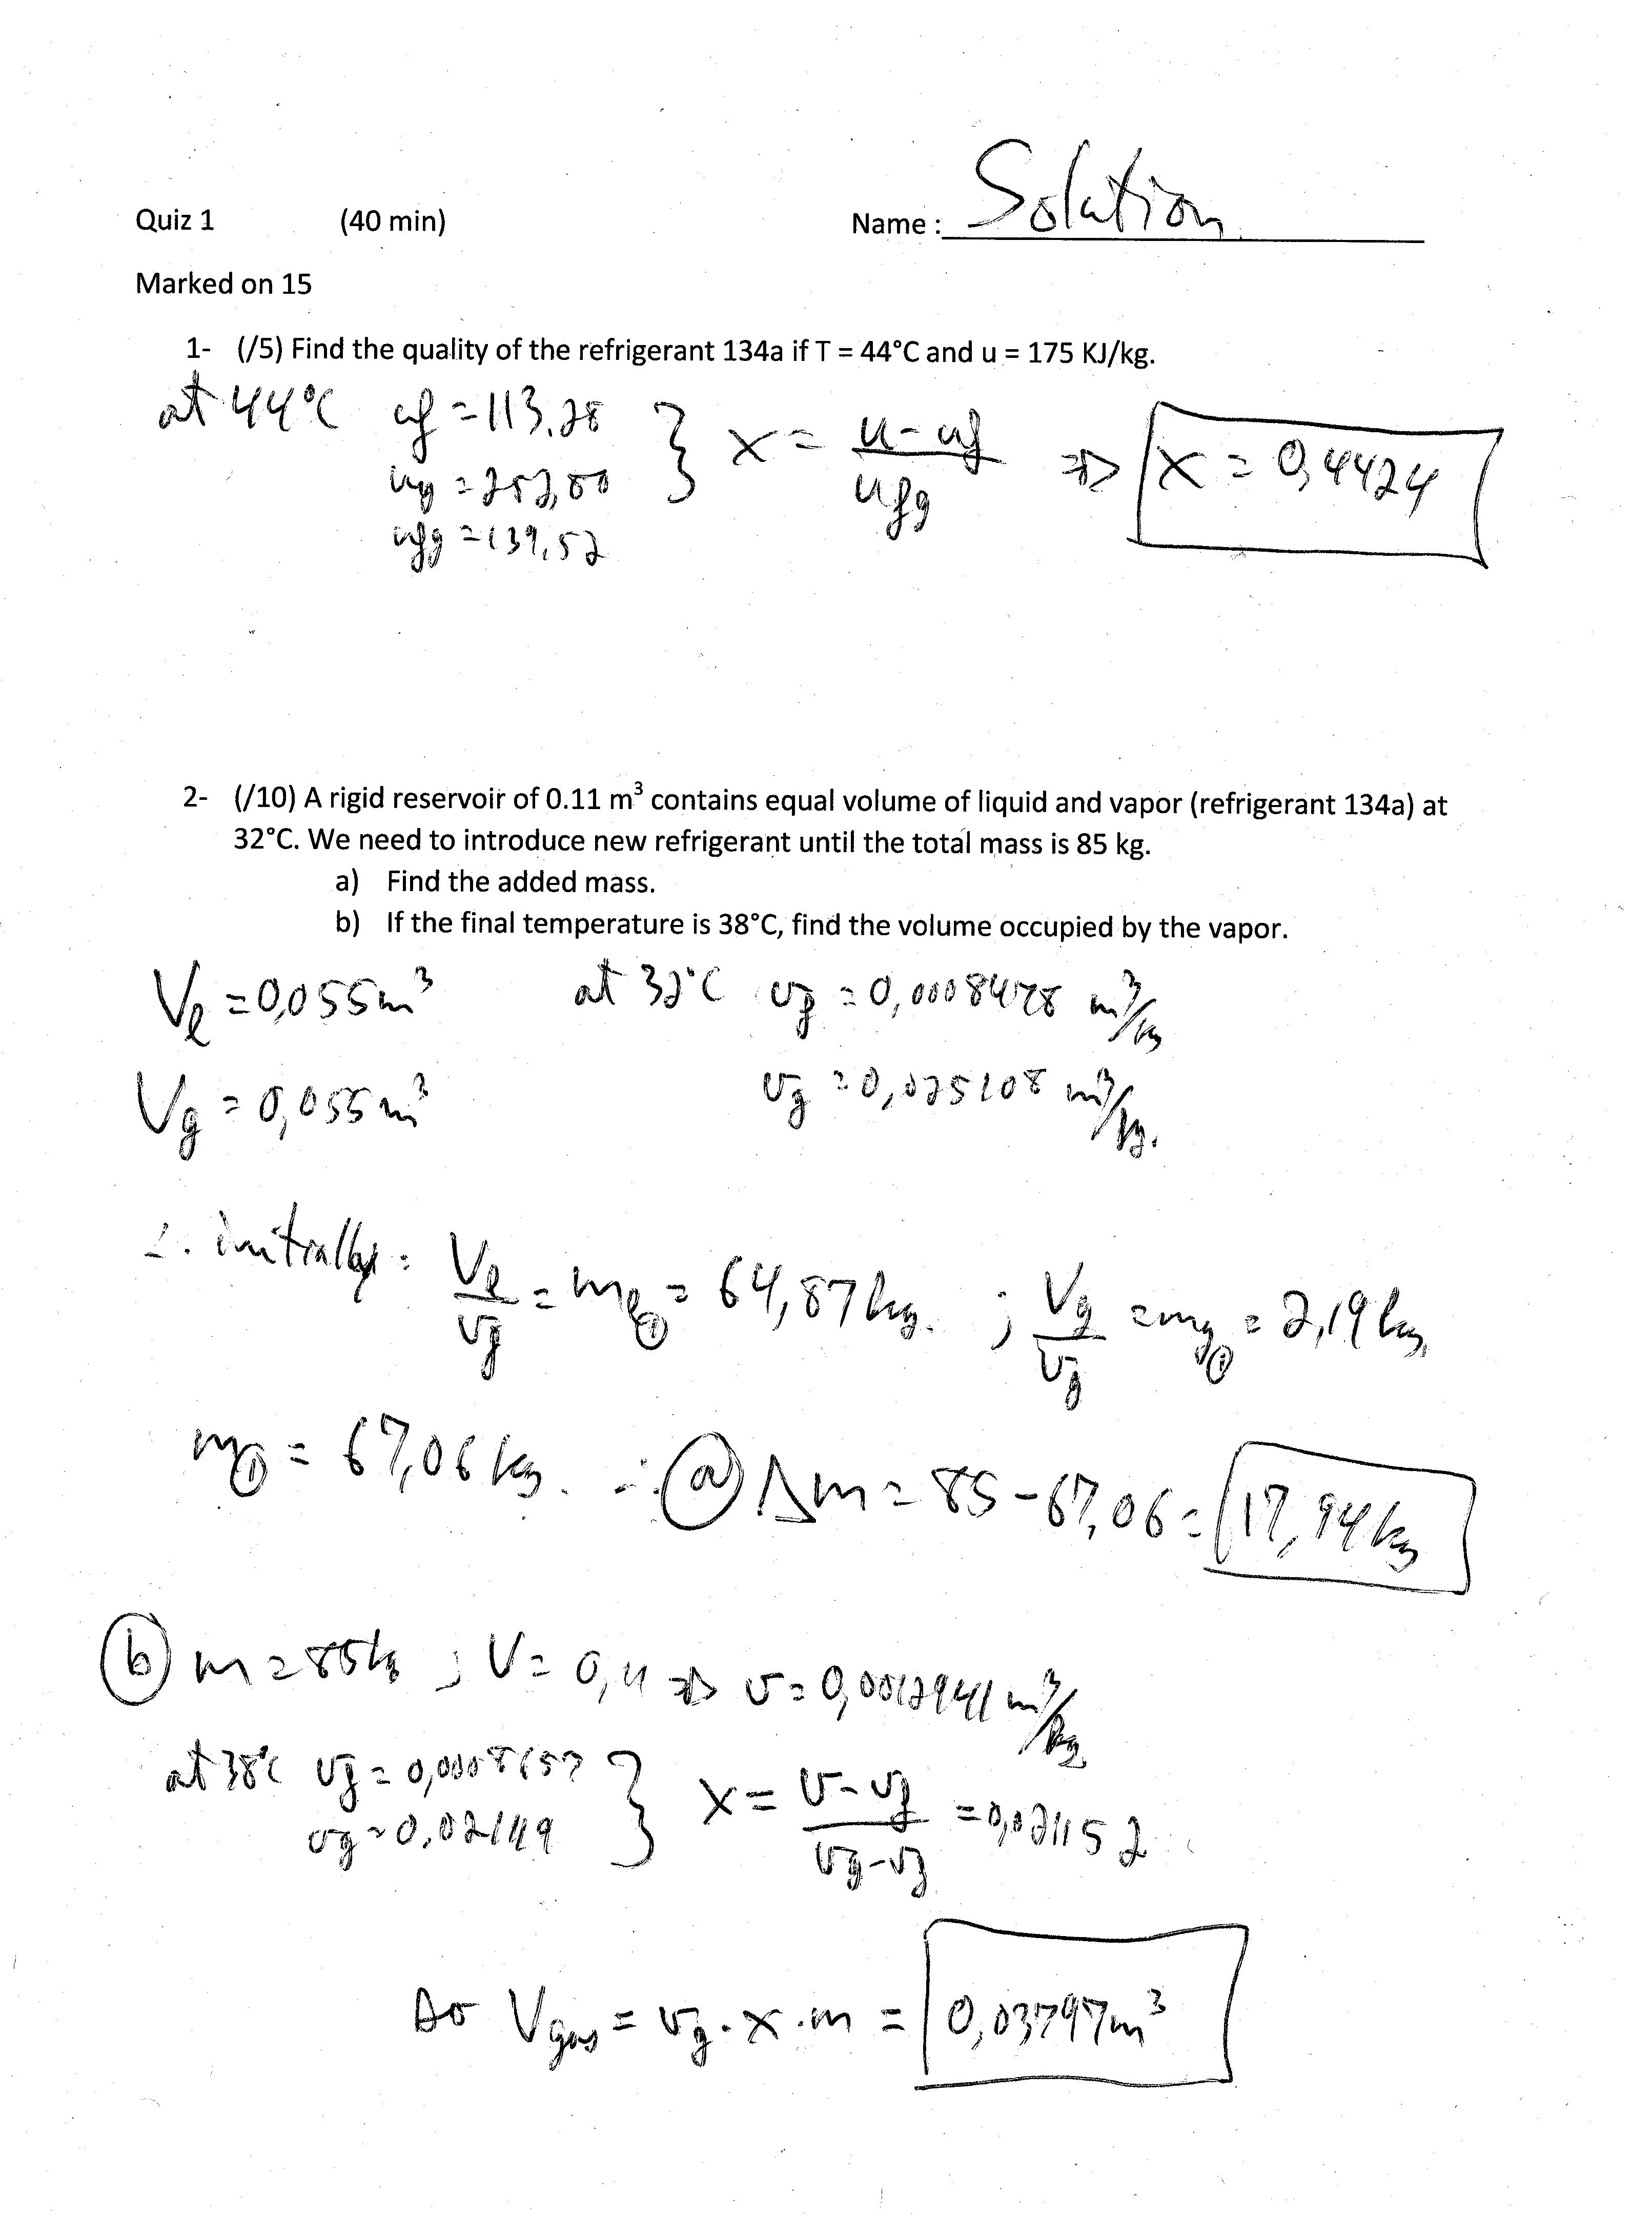 Quiz 1 (40 min) Name : Solution
Marked on 15
1- (/5) Find the quality of the refrigerant 134a if T = 44°C and u = 175 KJ/kg.
at 44°C uf = 113,28 } x = u-uf / ufg ⇒ x = 0,4424
ug = 252,80
ufg = 139,52
2- (/10) A rigid reservoir of 0.11 m³ contains equal volume of liquid and vapor (refrigerant 134a) at
32°C. We need to introduce new refrigerant until the total mass is 85 kg.
a) Find the added mass.
b) If the final temperature is 38°C, find the volume occupied by the vapor.
Vℓ = 0,055m³ at 32°C vf = 0,0008478 m³/kg
Vg = 0,055m³ vg = 0,025108 m³/kg.
∴ initially: Vℓ/vf = mℓ① = 64,87kg. ; Vg/vg = mg① = 2,19kg,
m① = 67,06kg. ∴ ⓐ Δm = 85-67,06 = 17,94kg
ⓑ m = 85kg ; V = 0,11 ⇒ v = 0,0012941 m³/kg.
at 38°C vf = 0,0008657 } x = v-vf / vg-vf = 0,021152
vg = 0,02119
so Vgas = vg.x.m = 0,03797m³